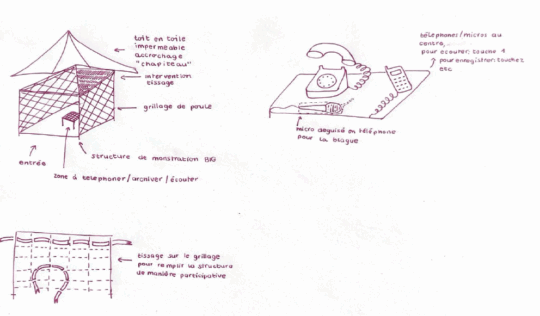 toit en toile
imperméable
accrochage
"chapiteau"
intervention
tissage
grillage de poule
structure de monstration BIG
entrée
zone à téléphoner/archiver/écouter
téléphones/micros au
centre,
pour écouter: touche 1
pour enregistrer: touche 2
etc
micro déguisé en téléphone
pour la blague
tissage sur le grillage
pour remplir la structure
de manière participative